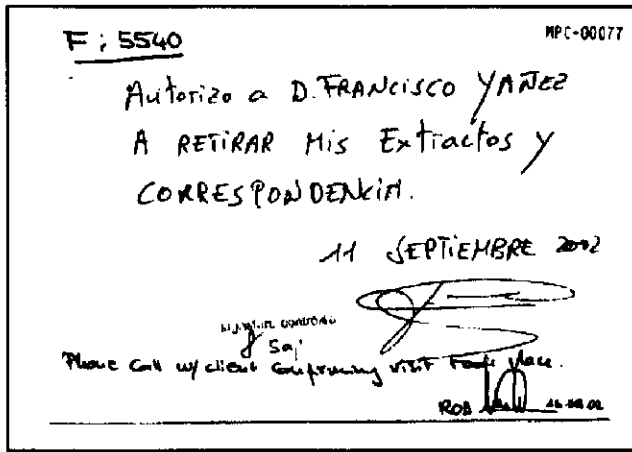 F: 5540
MPC-00077
Autorizo a D. FRANCISCO YAÑEZ
A RETIRAR Mis Extractos y
CORRESPONDENCIA.
11 SEPTIEMBRE 2002
Phone Call w/ client confirming visit took place.
ROB